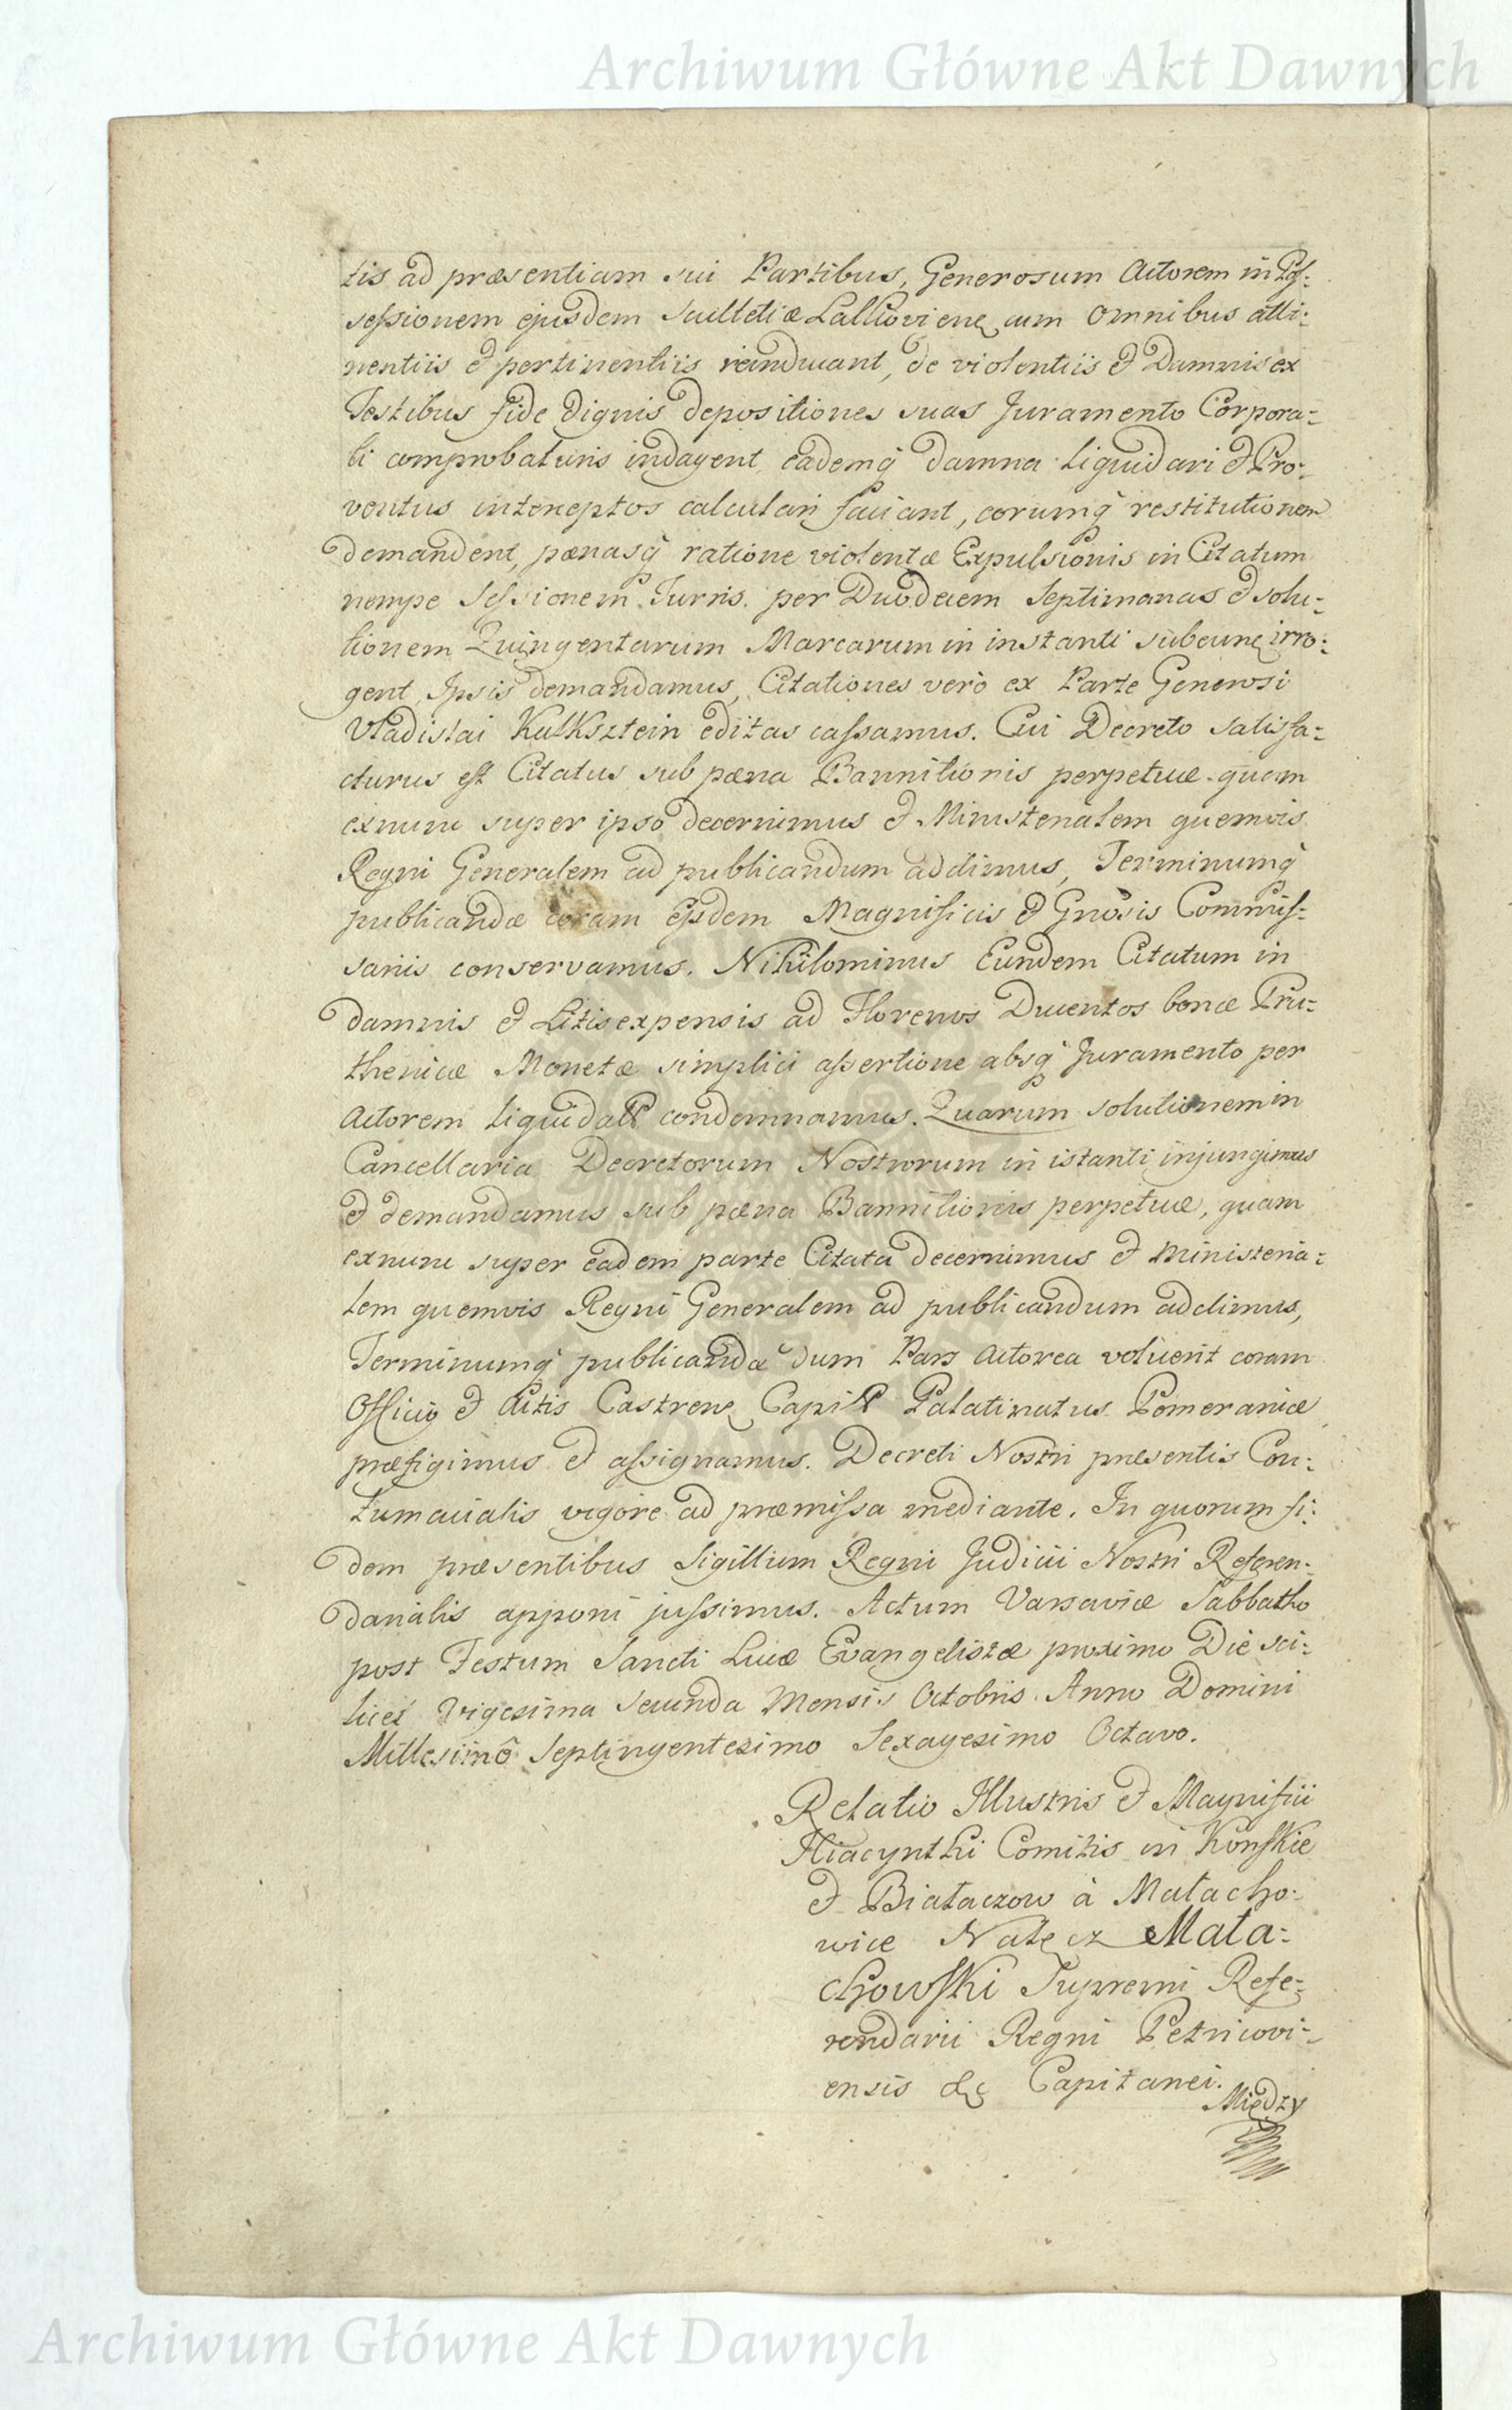 Archiwum Główne Akt Dawnych
tis ad præsentiam sui Partibus, Generosum Actorem in Pos:
sessionem ejusdem Scultetiæ Lalkoviens cum omnibus atti:
nentiis et pertinentiis reinducant, de violentiis et Damnis ex
Testibus fide dignis depositiones suas Juramento Corpora=
li comprobaturis indagent, eademq damna liquidari et Pro:
ventus interceptos calculari faciant, eorumq restitutionem
demandent, pænasq ratione violentæ Expulsionis in Citatum
nempe Sessionem Turris per Duodecem Septimanas et solu=
tionem Quingentarum Marcarum in instanti subeund irro:
gent, Ipsis demandamus, Citationes verò ex Parte Generosi
Vladislai Kalksztein editas cassamus. Cui Decreto satisfa=
cturus est Citatus sub pæna Bannitionis perpetuæ quam
exnunc super ipso decernimus et Ministerialem quemvis
Regni Generalem ad publicandum addimus, Terminumq
publicandæ coram ejsdem Magnificis et Gnosis Commis=
sariis conservamus. Nihilominus Eundem Citatum in
damnis et Litis expensis ad Florenos Ducentos bonæ Pru=
thenicæ Monetæ simplici assertione absq Juramento per
Actorem liquidat condemnamus. Quarum solutionem in
Cancellaria Decretorum Nostrorum in istanti injungimus
et demandamus sub pæna Bannitionis perpetuæ, quam
exnunc super eadem parte Citata decernimus et Ministeria=
lem quemvis Regni Generalem ad publicandum addimus,
Terminumq publicandæ dum Pars Actorea voluerit coram
Officio et Actis Castrens Capit Palatinatus Pomeraniæ
præfigimus et assignamus. Decreti Nostri præsentis Con:
tumacialis vigore ad præmissa mediante. In quorum fi:
dem præsentibus Sigillum Regni Judicii Nostri Referen=
darialis apponi jussimus. Actum Varsaviæ Sabbatho
post Festum Sancti Lucæ Evangelistæ proximo Die sci:
licet Vigesima Secunda Mensis Octobris Anno Domini
Millesimô Septingentesimo Sexagesimo Octavo.
Relatio Illustris et Magnifici
Hiacynthi Comitis in Konskie
et Białaczow à Małacho=
wice Nałęcz Mała=
chowski Supremi Refe=
rendarii Regni Petricovi=
ensis &c Capitanei.
Między
Archiwum Główne Akt Dawnych